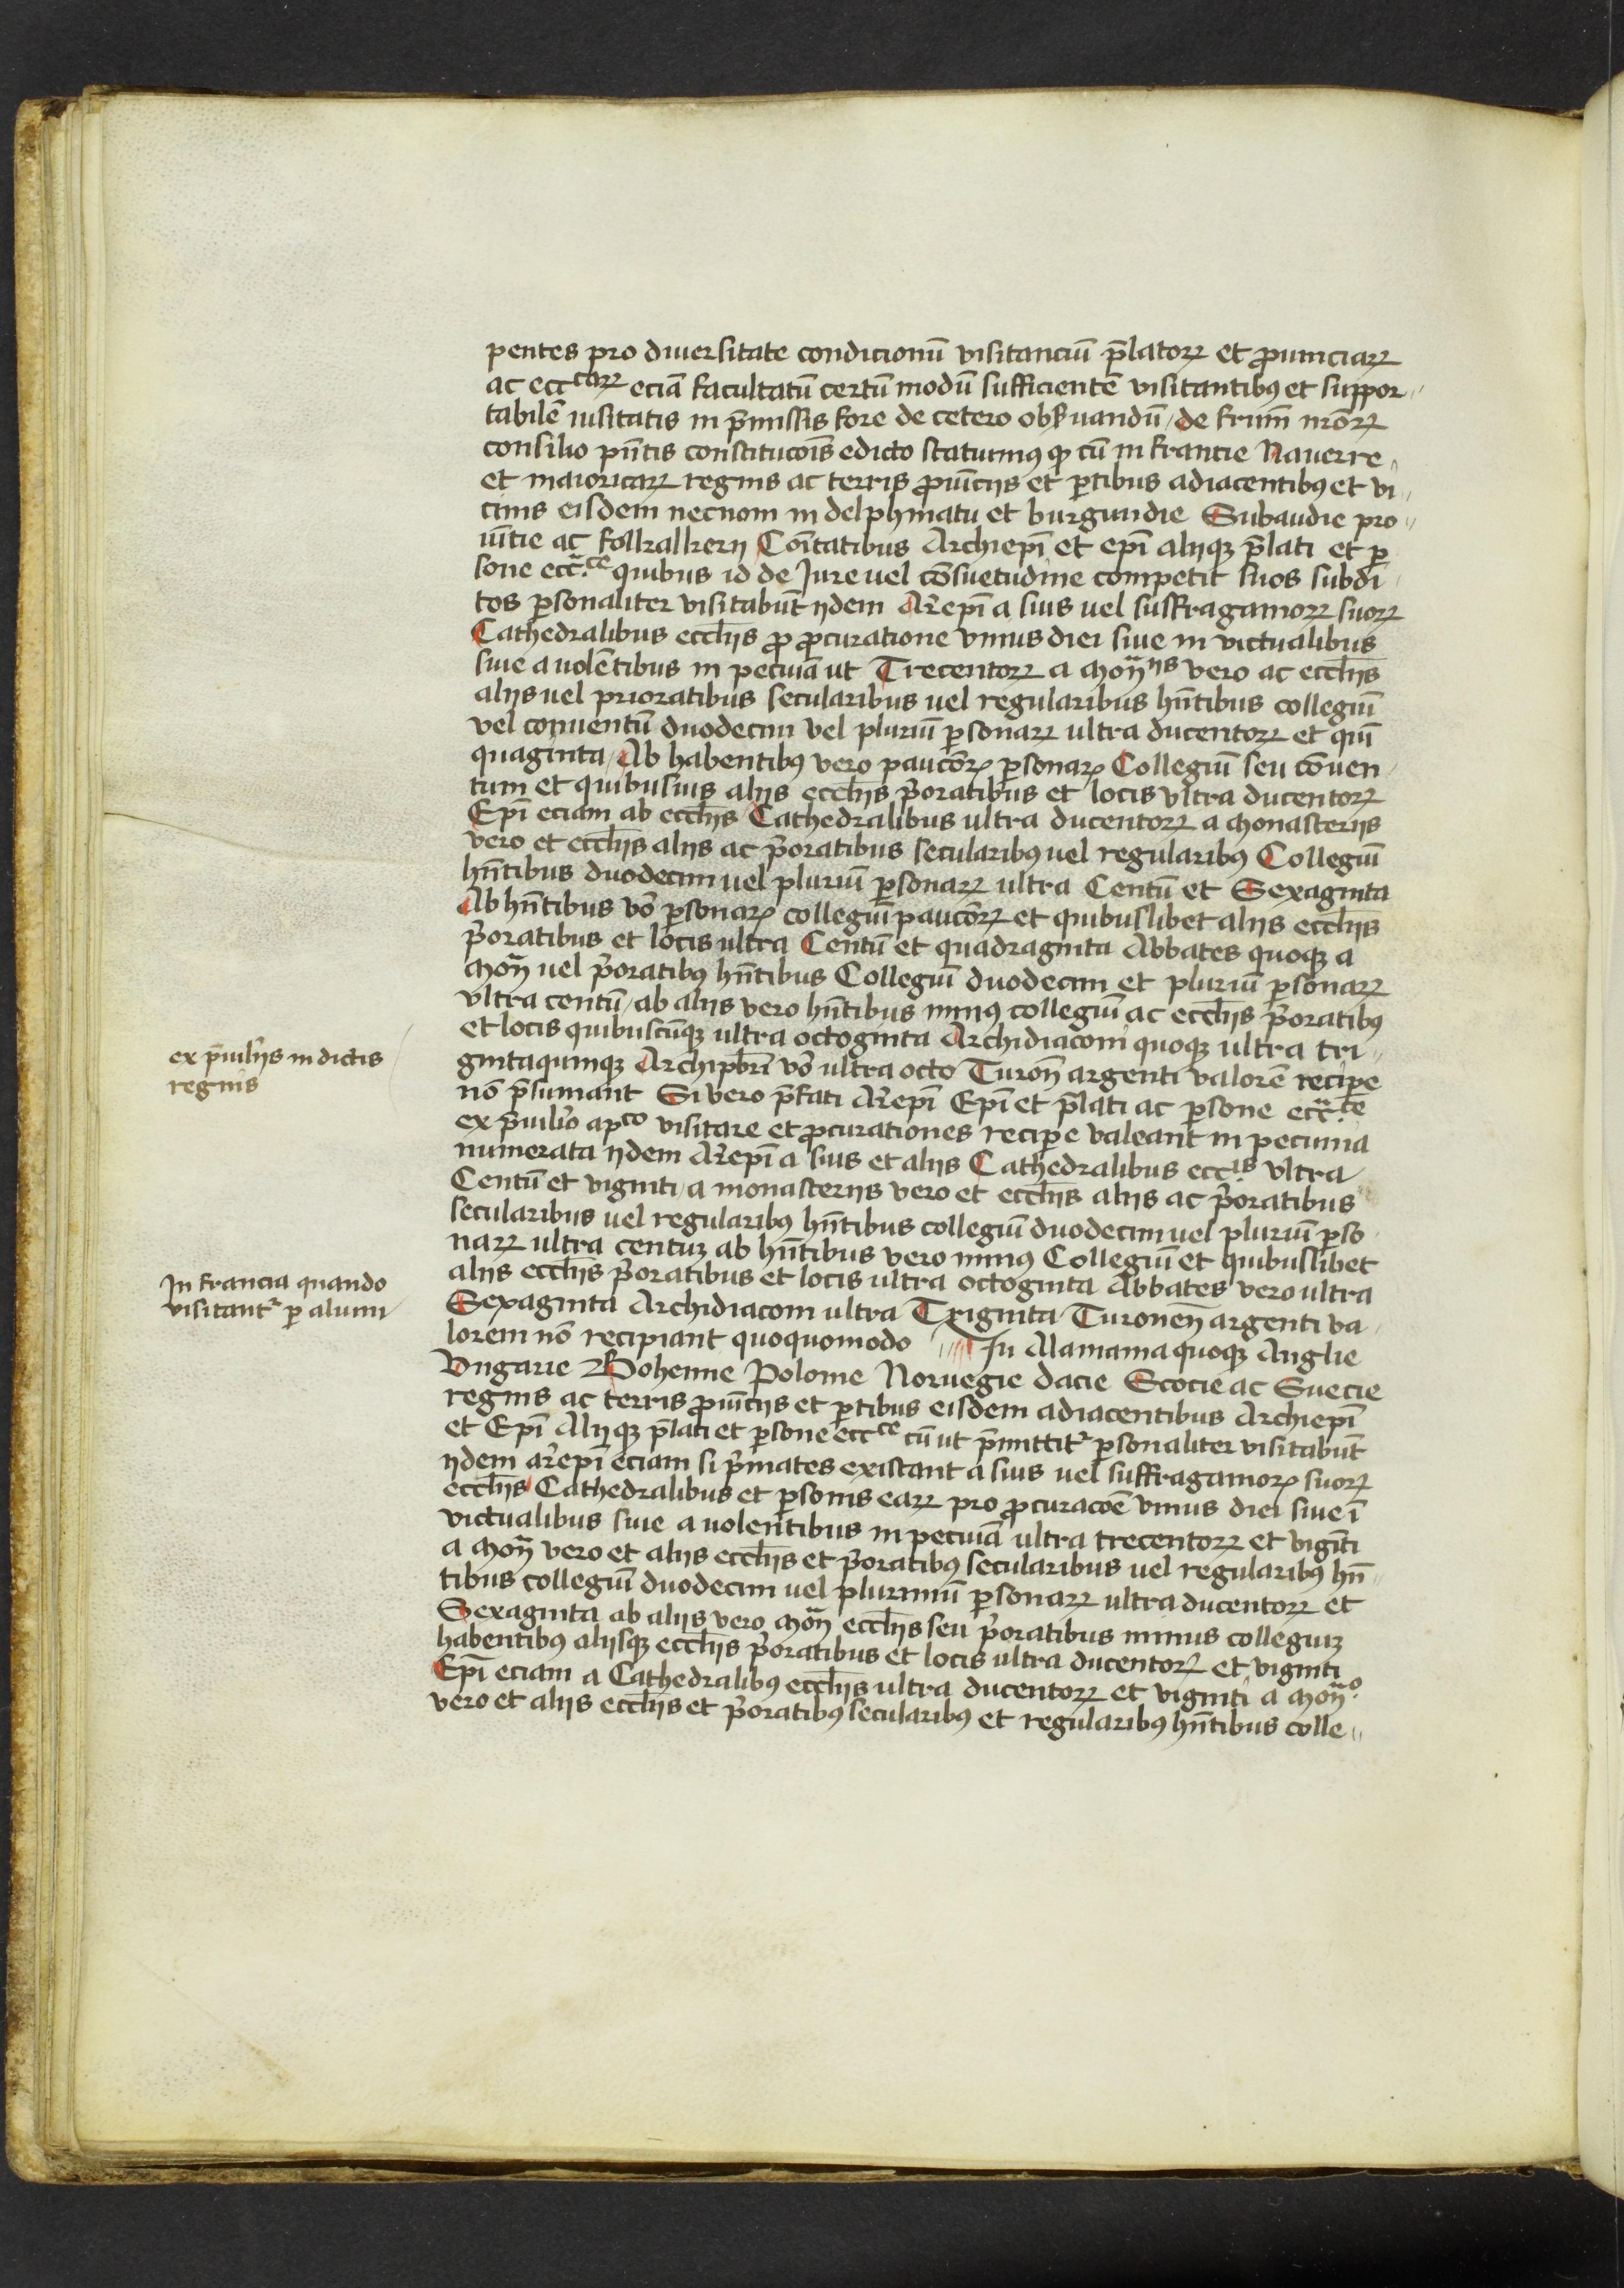 pentes pro diuersitate condicionū visitanciū p̄latoꝝ et ꝓuinciaꝝ
ac ecc͞caꝝ eciā facultatū certū modū sufficientē visitantibꝰ et suppor〃
tabilē iusitatis in p̄missis fore de cetero obẜuandū / de frūm nr̄oꝝ
consilio pn̄tis constitucōis edicto statuimꝰ ꝙ cū in francie Nauerre〃
et maioricaꝝ regnis ac terris ꝓuīciis et ꝑtibus adiacentibꝰ et vi〃
cinis eisdem necnom in delphinatu et burgundie Subaudie pro〃
uītie ac folkalkerij Cōītatibus Archiepī et epī alijqꝫ p̄lati et ꝑ
sone ecc̄ᶜᵉ quibus id de Jure uel cōsuetudine competit suos subdi
tos ꝑsonaliter visitabūt ijdem Ar̄epī a suis uel suffraganioꝝ suoꝝ
Cathedralibus eccl̄ijs ꝓ ꝓcuratione vnius diei siue in victualibus
siue a uolētibus in pecuīa ut Trecentoꝝ a Mon̄ijs vero ac eccl̄ijs
alijs uel prioratibus secularibus uel regularibus hn̄tibus collegiū
vel conuentū duodecim vel pluriū ꝑsonaꝝ ultra ducentoꝝ et quī
quaginta / Ab habentibꝰ vero paucōꝝ ꝑsonaꝝ Collegiū seu cōuen
tum et quibusuis alijs eccl̄ijs p̄oratibus et locis vltra ducentoꝝ
Epī eciam ab eccl̄ijs Cathedralibus ultra ducentoꝝ a Monasterijs
vero et eccl̄ijs alijs ac p̄oratibus secularibꝰ uel regularibꝰ Collegiū
hn̄tibus duodecim uel pluriū ꝑsonaꝝ ultra Centū et Sexaginta
Ab hn̄tibus vō ꝑsonaꝝ collegiū paucōꝝ et quibuslibet alijs eccl̄ijs
p̄oratibus et locis ultra Centū et quadraginta Abbates quoqꝫ a
Mon̄ uel p̄oratibꝰ hn̄tibus Collegiū duodecim et pluriū ꝑsonaꝝ
vltra centū / ab alijs vero hn̄tibus minꝰ collegiū ac eccl̄ijs p̄oratibꝰ
et locis quibuscūqꝫ ultra octoginta Archidiaconi quoqꝫ ultra tri〃
gintaquinqꝫ Archip̄brī vō ultra octo Turon̄ argenti valorē recipe
nō p̄sumant Si vero p̄fati Ar̄epī Epī et p̄lati ac ꝑsone ecc̄ᶜᵉ
ex p̄uil̄io apᶜᵒ visitare et ꝓcurationes recipe valeant in pecunia
numerata ijdem Ar̄epī a suis et alijs Cathedralibus ecc̄ⁱˢ vltra
Centū et viginti / a monasterijs vero et eccl̄ijs alijs ac p̄oratibus
secularibus uel regularibꝰ hn̄tibus collegiū duodecim uel pluriū ꝑso
naꝝ ultra centuꝫ ab hn̄tibus vero minꝰ Collegiū et quibuslibet
alijs eccl̄ijs p̄oratibus et locis ultra octoginta Abbates vero ultra
Sexaginta Archidiaconi ultra Triginta Turonen̄ argenti va
lorem nō recipiant quoquomodo In Alamania quoqꝫ Anglie
Vngarie Bohemie Polonie Noruegie dacie Scocie ac Suecie
regnis ac terris ꝓuīcijs et ꝑtibus eisdem adiacentibus Archiepī
et Epī Alijqꝫ p̄lati et ꝑsone eccᶜᵉ cū ut p̄mittitʳ ꝑsonaliter visitabūt
ijdem ar̄epī eciam si p̄mates existant a suis uel suffraganioꝝ suoꝝ
eccl̄ijs Cathedralibus et ꝑsonis eaꝝ pro ꝓcuracōe vnius diei siue ī
victualibus siue a uolentibus in pecuīa ultra trecentoꝝ et vigīti
a Mon̄ vero et alijs eccl̄ijs et p̄oratibꝰ secularibus uel regularibꝰ hn̄
tibus collegiū duodecim uel plurimiū ꝑsonaꝝ ultra ducentoꝝ et
Sexaginta ab alijs vero Mon̄ eccl̄ijs seu p̄oratibus minus collegiuꝫ
habentibꝰ alijsqꝫ eccl̄ijs p̄oratibus et locis ultra ducentoꝝ et viginti
Epī eciam a Cathedralibꝰ eccl̄ijs ultra ducentoꝝ et viginti a Mon̄ᵒ
vero et alijs eccl̄ijs et p̄oratibꝰ secularibꝰ et regularibꝰ hn̄tibus colle〃
ex p̄uil̄ijs in dictis
regnis
In francia quando
visitantʳ ꝑ alium